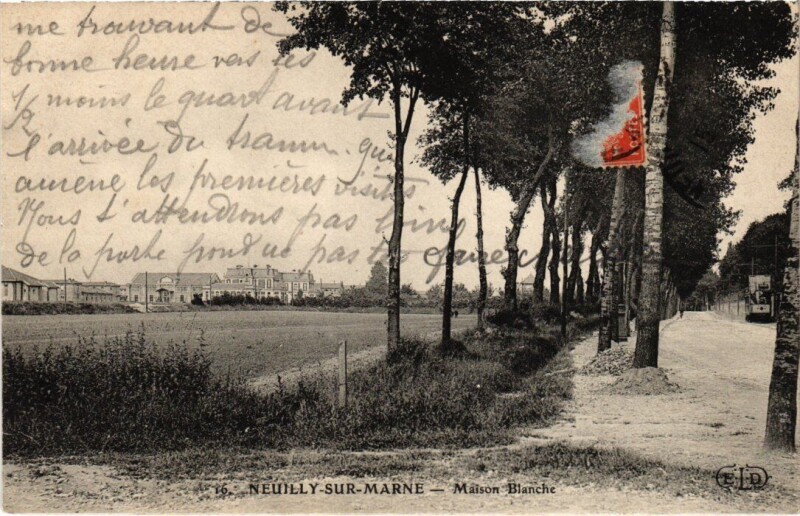 me trouvant de
bonne heure vers les
1/2 moins le quart avant
l'arrivée du tramm. que
amène les premières visites
Nous t'attendrons pas loin
de la porte pour ne pas te
16. NEUILLY-SUR-MARNE — Maison Blanche
ELD